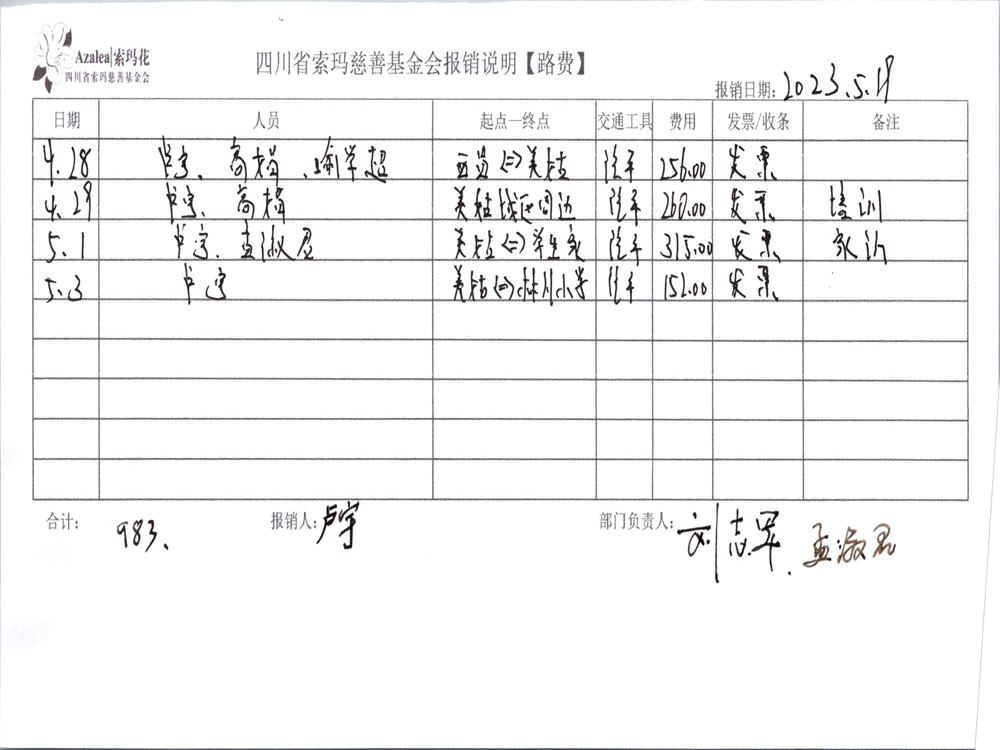 Azalea|索玛花
四川省索玛慈善基金会
四川省索玛慈善基金会报销说明【路费】
报销日期: 2023.5.19
日期 人员 起点—终点 交通工具 费用 发票/收条 备注
4.28 卢宇、高楷、喻学超 西昌<=>美姑 汽车 256.00 发票
4.29 卢宇、高楷 美姑城区周边 汽车 260.00 发票 培训
5.1 卢宇、孟淑君 美姑<=>学生家 汽车 315.00 发票 家访
5.3 卢宇 美姑<=>小学 汽车 152.00 发票
合计: 983. 报销人: 卢宇 部门负责人: 刘志军. 孟淑君